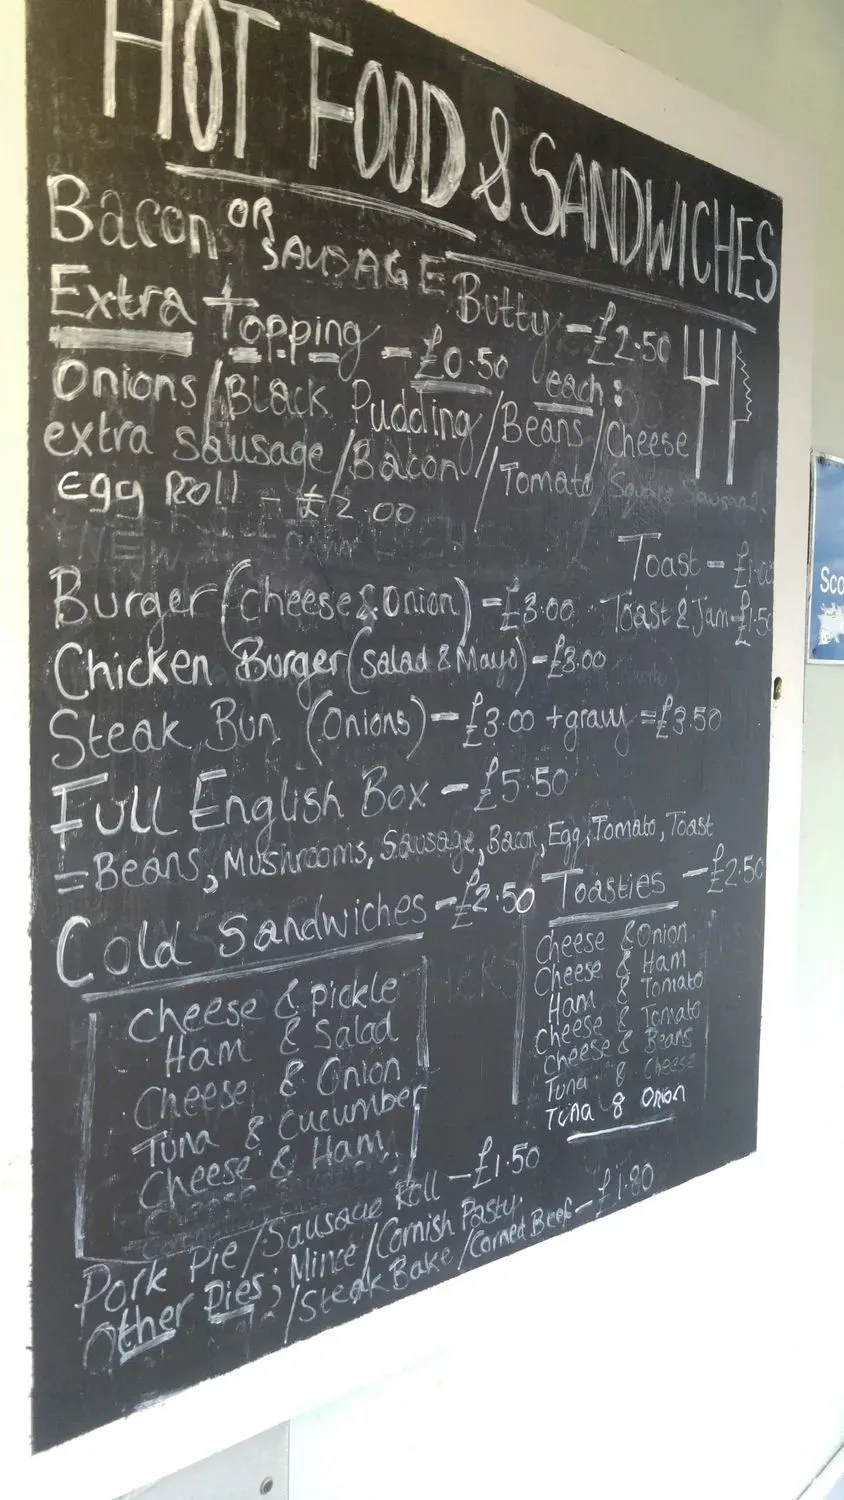 HOT FOOD & SANDWICHES
Bacon OR SAUSAGE Butty - £2.50
Extra Topping - £0.50 each:
Onions/Black Pudding/Beans/Cheese
extra sausage/Bacon/Tomato/Square Sausage
Egg Roll - £2.00
Toast - £1.00
Burger (cheese & Onion) - £3.00
Toast & Jam - £1.50
Chicken Burger (Salad & Mayo) - £3.00
Steak Bun (Onions) - £3.00 + gravy = £3.50
Full English Box - £5.50
= Beans, Mushrooms, Sausage, Bacon, Egg, Tomato, Toast
Cold Sandwiches - £2.50
Cheese & Pickle
Ham & Salad
Cheese & Onion
Tuna & Cucumber
Cheese & Ham
Toasties - £2.50
Cheese & Onion
Cheese & Ham
Ham & Tomato
Cheese & Tomato
Cheese & Beans
Tuna & Cheese
Tuna & Onion
Pork Pie/Sausage Roll - £1.50
Other Pies; Mince/Cornish Pasty
/Steak Bake/Corned Beef - £1.80
Sco